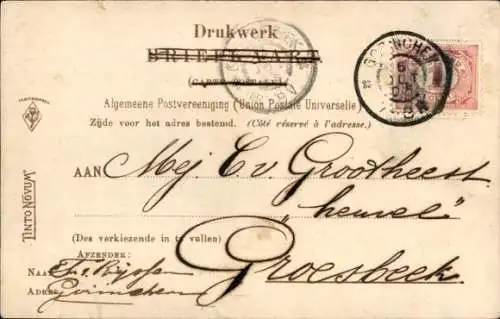 Drukwerk
BRIEFKAART
(CARTE POSTALE)
GORINCHEM
Algemeene Postvereeniging (Union Postale Universelle)
Zijde voor het adres bestemd. (Côté réservé à l'adresse.)
AAN Mej C v. Grootheest
"hemel"
Groesbeek
(Des verkiezende in te vullen)
AFZENDER:
NAAM
ADRES Gorinchem
TINTO NOVUM